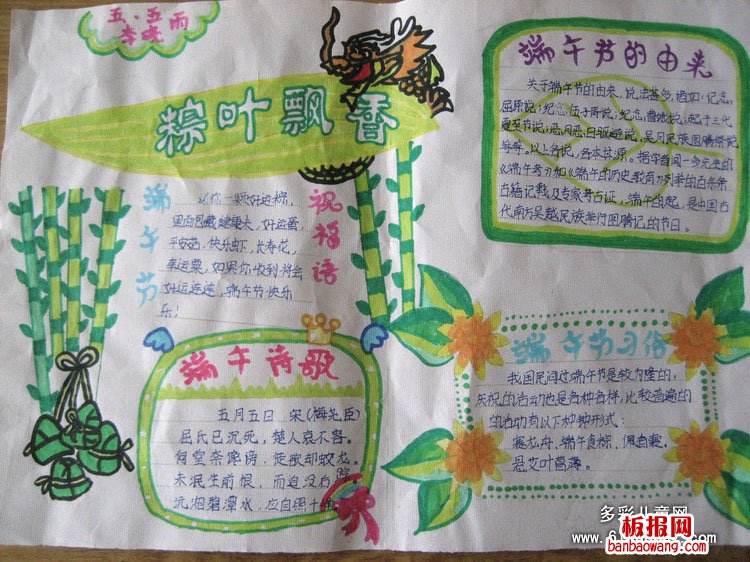 五.五雨
李晓
粽叶飘香
端午节
祝福语
送你一颗好运粽,
里面包藏健康火,好运蛋,
平安菇,快乐虾,长寿花,
幸运粟,如果你收到将会
好运连连,端午节快乐
乐!
端午诗歌
五月五日 宋(梅尧臣)
屈氏已沉死,楚人哀不容。
何尝奈谗谤,徒欲却蛟龙。
未泯生前恨,而追没后踪。
沅湘碧潭水,应自照千
端午节的由来
关于端午节的由来,说法甚多,诸如:纪念
屈原说;纪念伍子胥说;纪念曹娥说;起于三代
夏至节说;恶月恶日驱避说,吴月民族图腾祭说
等等。以上各说,各本其源。据学者闻一多先生的
《端午考》和《端午的历史教育》列举的百余条
古籍记载及专家考古证,端午的起,是中国古
代南方吴越民族举行图腾记的节日。
端午节习俗
我国民间过端午节是较为隆的,
庆祝的活动也是各种各样,比较普遍的
的活动有以下种种形式:
赛龙舟、端午食粽、佩香囊、
悬艾叶菖蒲。
多彩儿童网
板报网
banbaowang.com